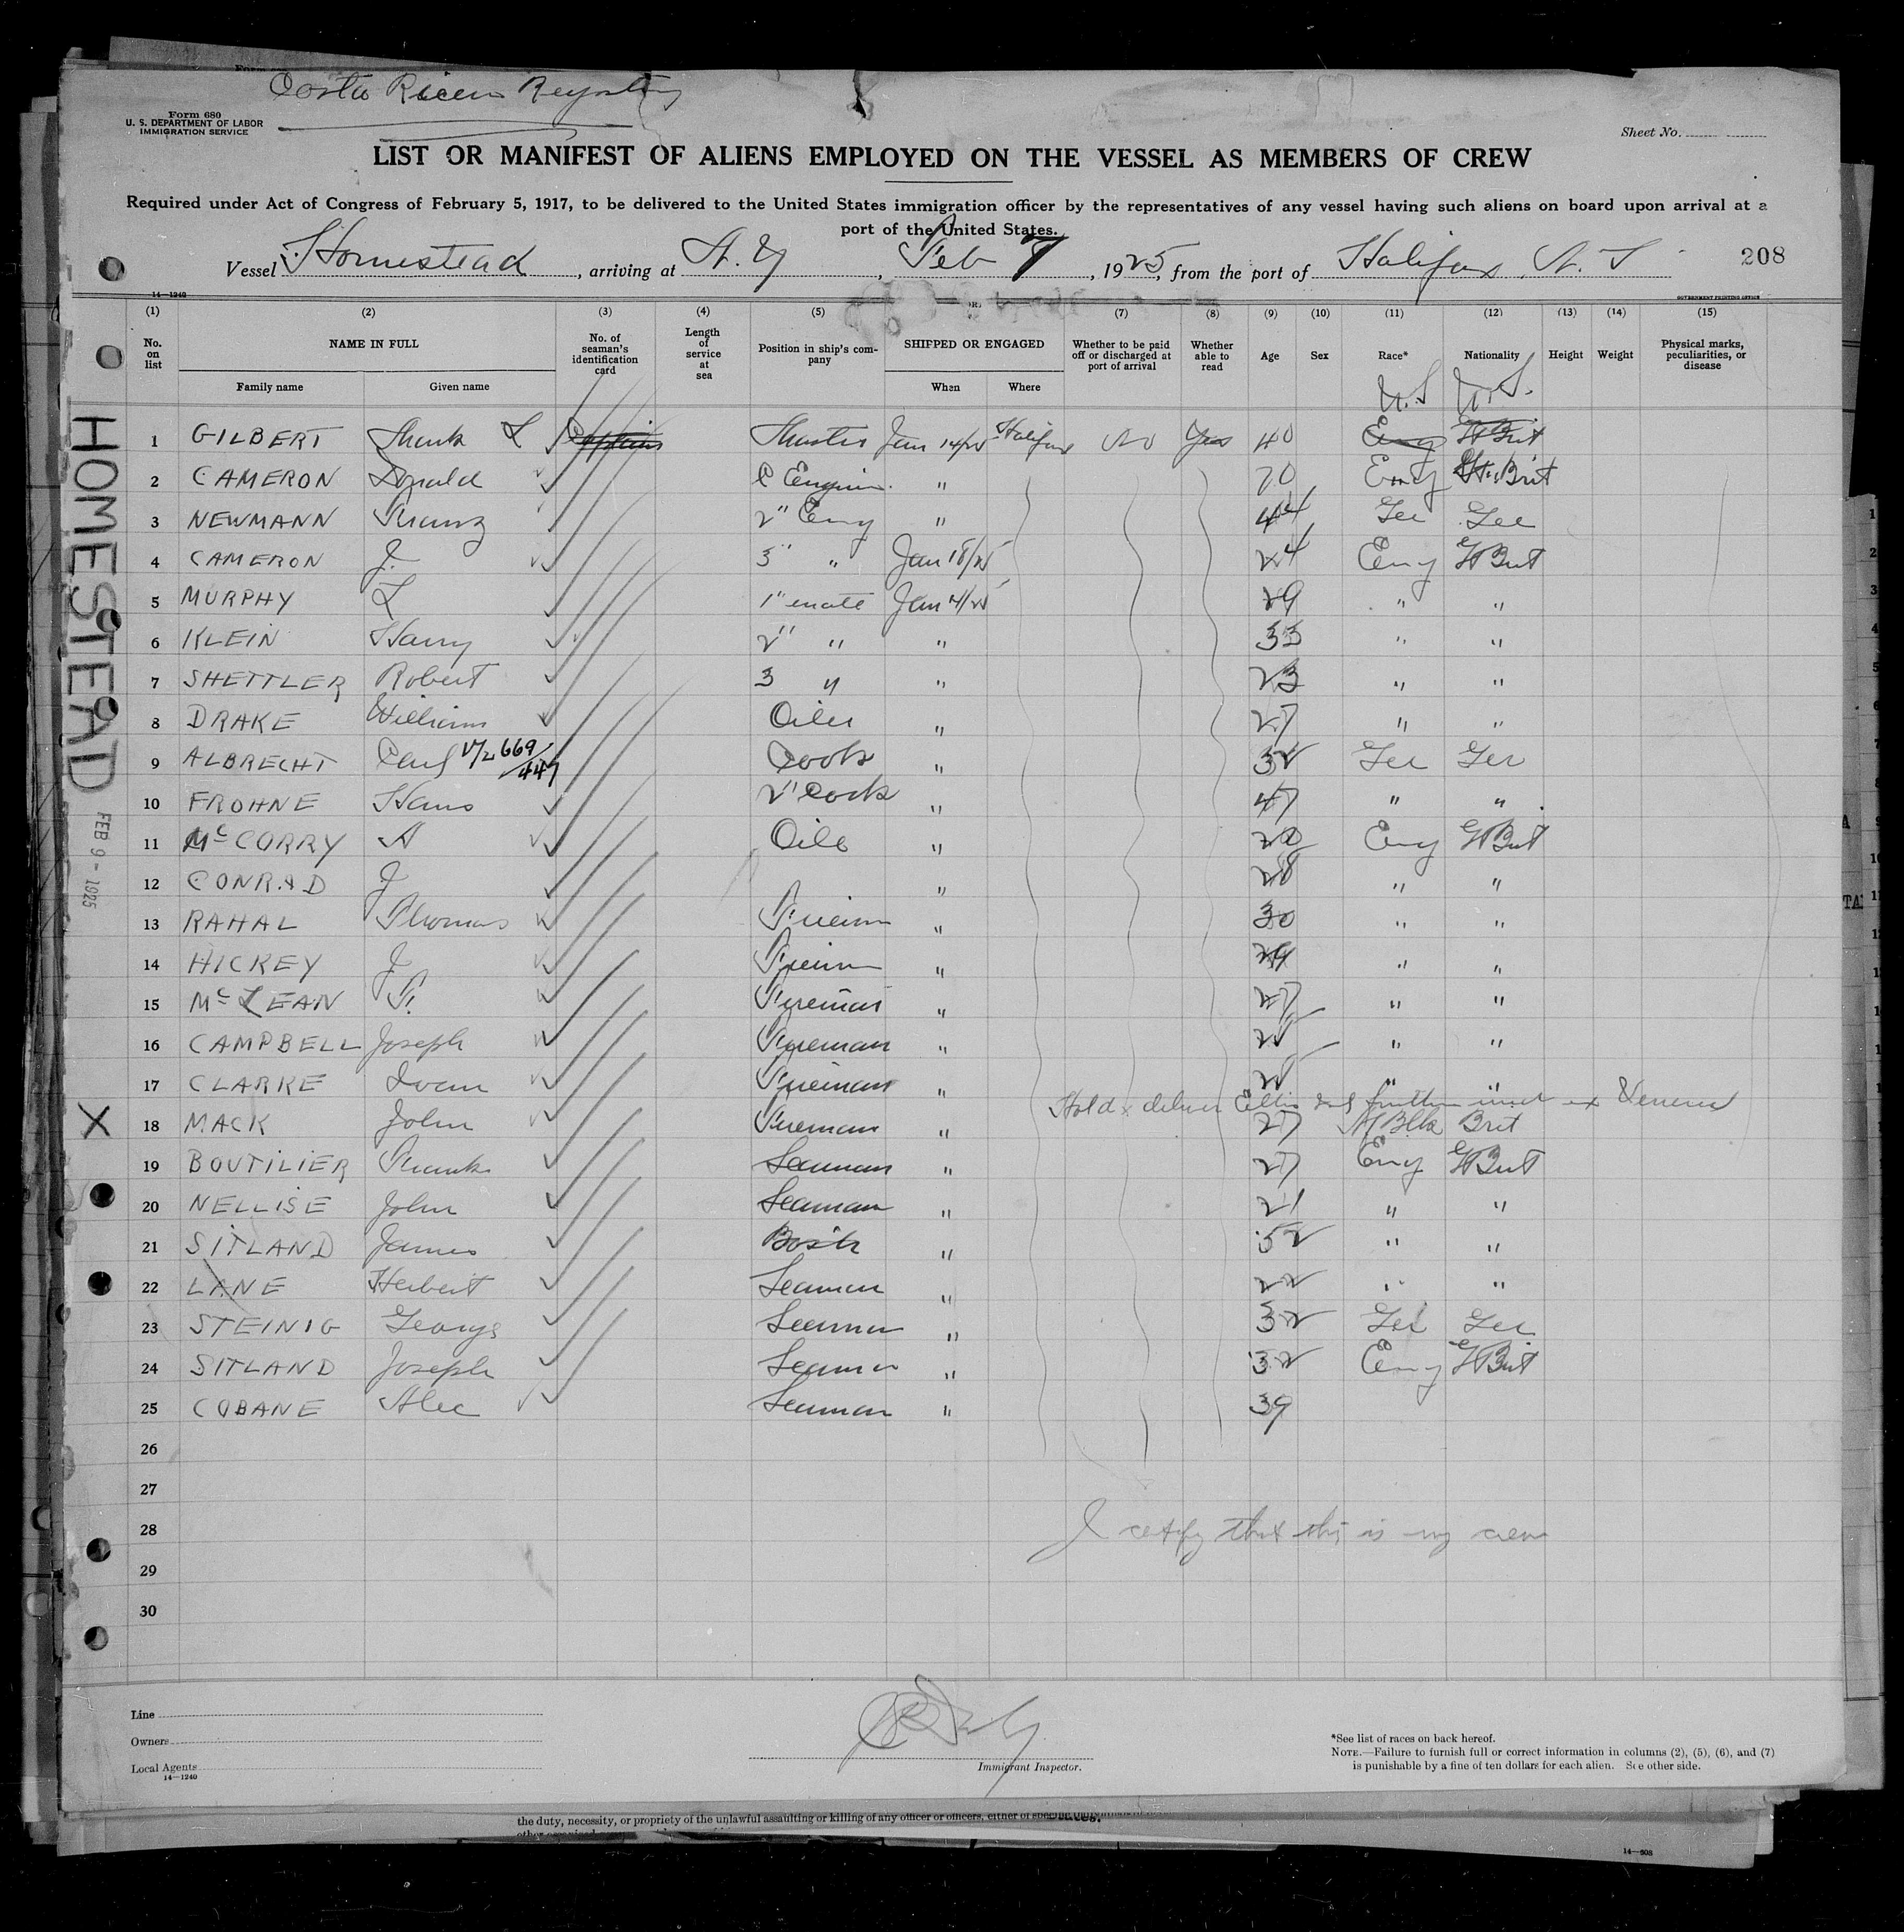 Form 680
U. S. DEPARTMENT OF LABOR
IMMIGRATION SERVICE
Sheet No.
LIST OR MANIFEST OF ALIENS EMPLOYED ON THE VESSEL AS MEMBERS OF CREW
Required under Act of Congress of February 5, 1917, to be delivered to the United States immigration officer by the representatives of any vessel having such aliens on board upon arrival at a
port of the United States.
Vessel Homestead, arriving at N. Y, Feb 7, 1925, from the port of Halifax N. S 208
14—1240
GOVERNMENT PRINTING OFFICE
(1) (2) (3) (4) (5) (7) (8) (9) (10) (11) (12) (13) (14) (15)
No. on list NAME IN FULL No. of seaman's identification card Length of service at sea Position in ship's company SHIPPED OR ENGAGED Whether to be paid off or discharged at port of arrival Whether able to read Age Sex Race* Nationality Height Weight Physical marks, peculiarities, or disease
Family name Given name When Where
U.S U.S.
1 GILBERT Frank L Captain Master Jan 14/25 Halifax No Yes 40 Eng Gt Brit
2 CAMERON Donald C Engin " 70 Eng Gt Brit
3 NEWMANN Franz 2" Eng " 44 Ger Ger
4 CAMERON J. 3" " Jan 18/25 24 Eng Gt Brit
5 MURPHY L 1" mate Jan 14/25 29 " "
6 KLEIN Harry 2" " " 33 " "
7 SHETTLER Robert 3 " " 23 " "
8 DRAKE William Oiler " 27 " "
9 ALBRECHT Carl V/2 669/447 Cook " 32 Ger Ger
10 FROHNE Hans 2" Cook " 47 " "
11 McCORRY A Oile " Eng Gt Brit
12 CONRAD J " 28 " "
13 RAHAL Thomas Fireim " 30 " "
14 HICKEY J Fireim " " "
15 McLEAN F. Fireman " 27 " "
16 CAMPBELL Joseph Fireman " " "
17 CLARKE Ivan Fireman " " "
Hold & deliver Ellis Isd further ex Venereal
X 18 MACK John Fireman " 27 Blk Brit
19 BOUTILIER Frank Seaman " 27 Eng Gt Brit
20 NELLISE John Seaman " 21 " "
21 SITLAND James Bosn " 52 " "
22 LANE Herbert Seaman " 22 " "
23 STEINIG George Seaman " 32 Ger Ger
24 SITLAND Joseph Seaman " 32 Eng Gt Brit
25 COBANE Alec Seaman " 39
26
27
28 I certify that this is my crew
29
30
HOMESTEAD
FEB 9 - 1925
Line
Owners
Local Agents
14—1240
Immigrant Inspector.
*See list of races on back hereof.
NOTE.—Failure to furnish full or correct information in columns (2), (5), (6), and (7)
is punishable by a fine of ten dollars for each alien. See other side.
the duty, necessity, or propriety of the unlawful assaulting or killing of any officer or officers, either of
14—508